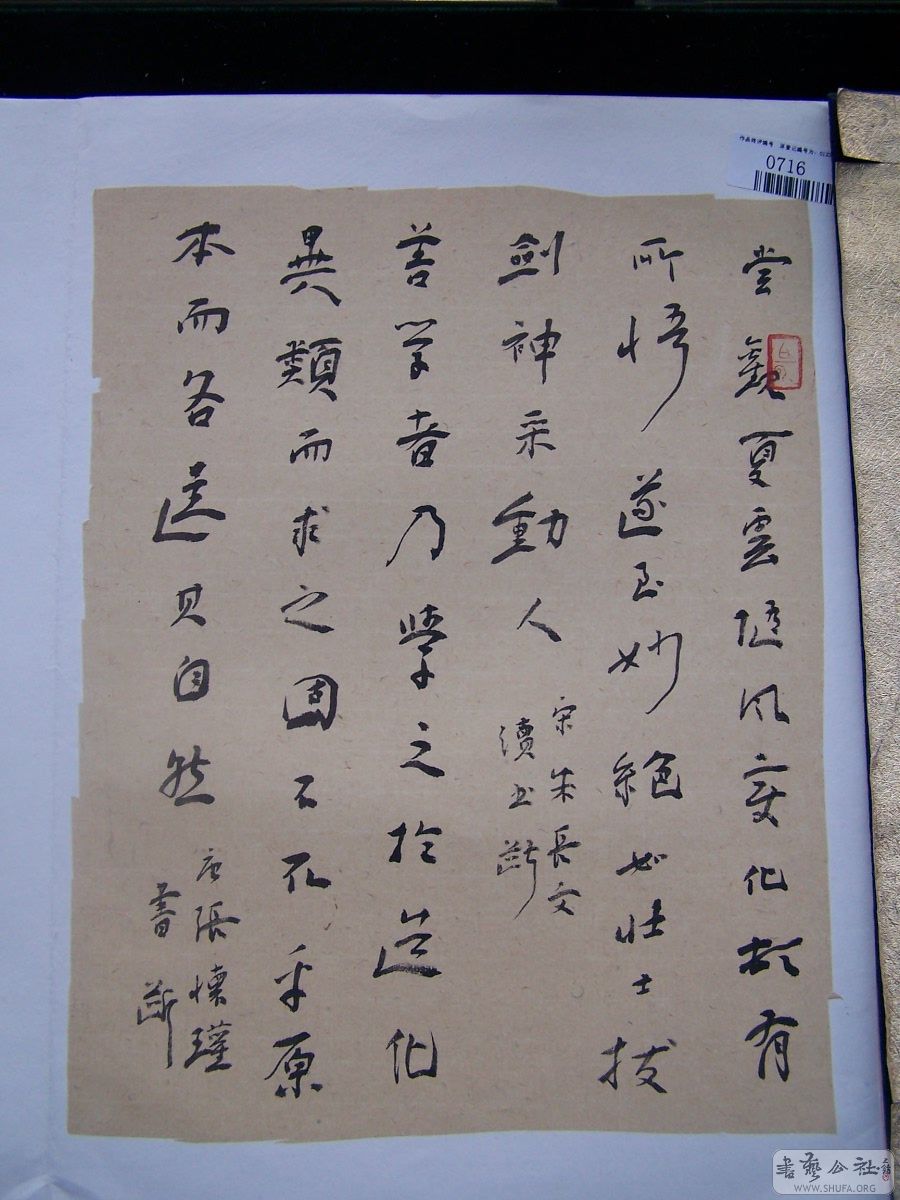 嘗觀夏雲隨風變化頗有
所悟遂至妙絕如壯士拔
劍神采動人
宋朱長文
續書斷
善學者乃學之於造化
異類而求之固不取乎原
本而各逞其自然
唐張懷瓘
書斷
0716
書藝公社
WWW.SHUFA.ORG